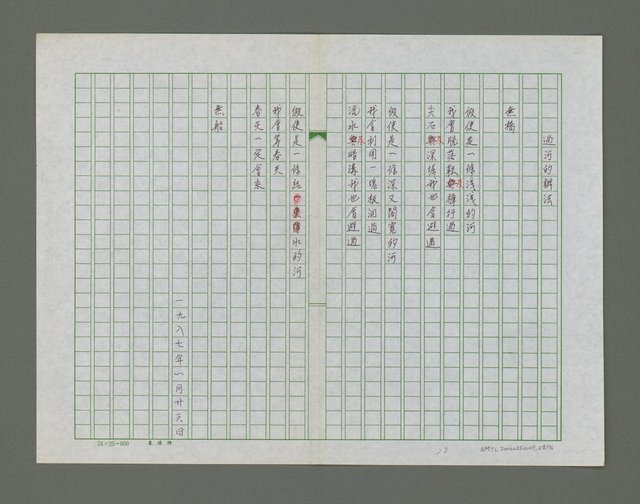 過河的辦法
無橋
假使是一條淺淺的河
我會脫落鞋褲行過
尖石與深溝我也會避過
假使是一條深又闊寬的河
我會利用一塊板泅過
流水與暗溝我也會避過
假使是一條結冰的河
我會等春天
春天一定會來
無船
一九八七年一月廿六日
24×25=600
NMTL20060250009.28/96